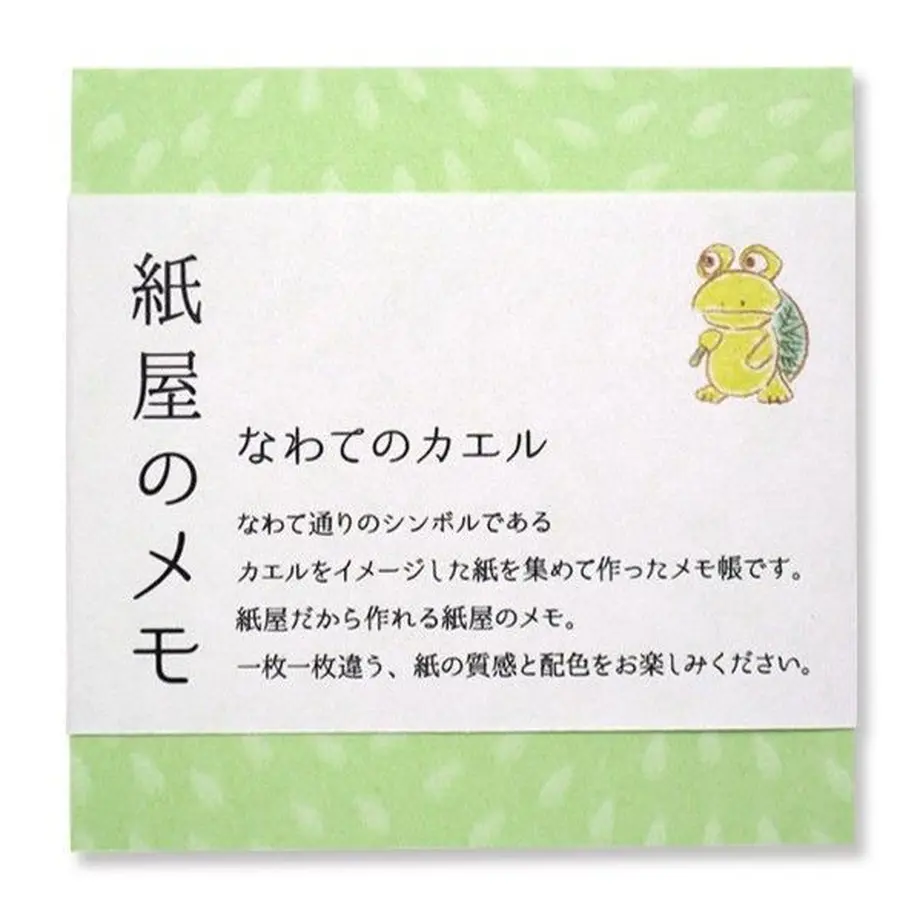 紙屋のメモ
なわてのカエル
なわて通りのシンボルである
カエルをイメージした紙を集めて作ったメモ帳です。
紙屋だから作れる紙屋のメモ。
一枚一枚違う、紙の質感と配色をお楽しみください。